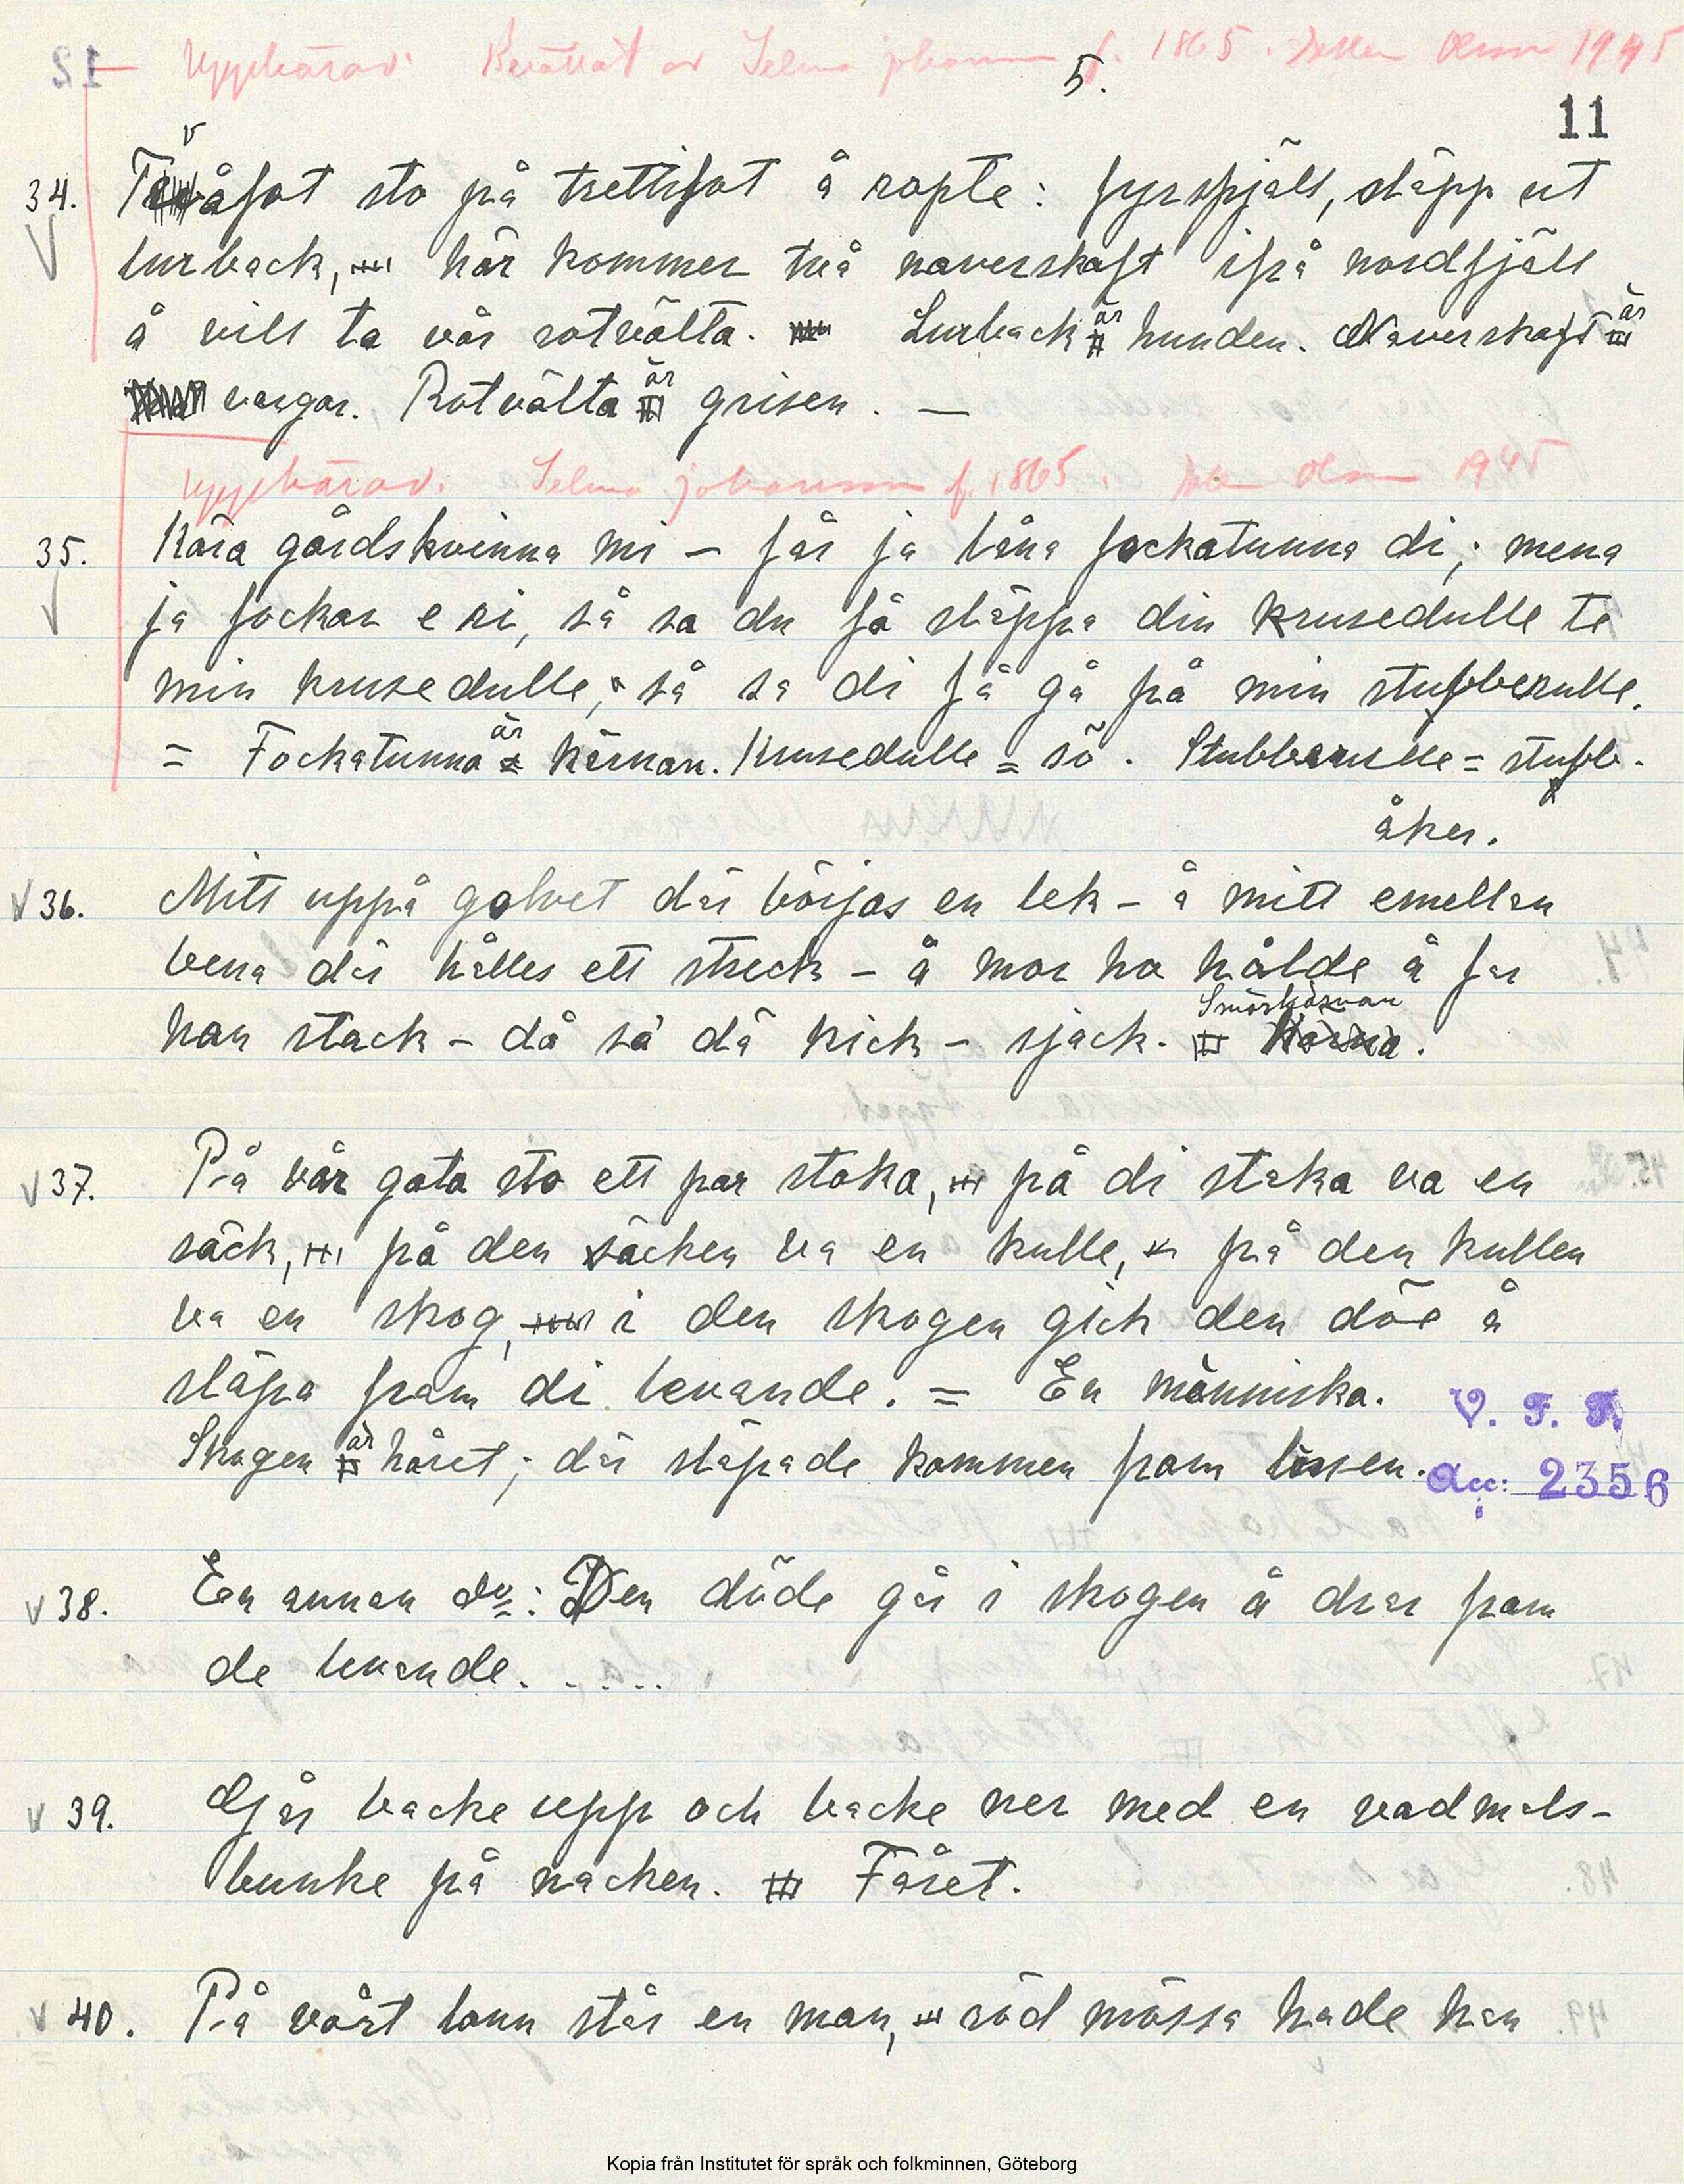 Upphärad. Berättat av Selma Johansson f. 1865. Olsson 1945
5.
11
34. Tvåfot sto på trettifot å ropte: fyrspjäll, släpp ut
lurback, här kommer två naverskaft ifrå nordfjäll
å vill ta vår rotvälta. Lurback är hunden. Naverskaft är
vargar. Rotvälta är grisen. —
Upphärad. Selma Johansson f. 1865. Olsson 1945
35. Kära gårdskvinna mi – får ja låna fockatunna di; mena
ja fockar e ri, så sa du få släppa din krusedulle te
min krusedulle, så sa di få gå på min stubberulle.
= Fockatunna är kärnan. Krusedulle = so. Stubberulle = stubb-
åker.
36. Mitt uppå golvet där börjas en lek – å mitt emellan
bena där hålles ett streck – å mor ho hålde å far
han stack – då sa dä kick – sjack. Smörkärnan
37. På vår gata sto ett par staka, på di staka va en
säck, på den säcken va en kulle, på den kullen
va en skog, i den skogen gick den döe å
släpa fram di levande. = En människa.
Skogen är håret; där släpade kammen fram lusen.
V. F. F.
Acc: 2356
38. En annan do: Den döde går i skogen å drar fram
de levande. . . . . .
39. Går backe upp och backe ner med en vadmals-
bunke på nacken. Fåret.
40. På vårt lann står en man, röd mössa hade han
Kopia från Institutet för språk och folkminnen, Göteborg